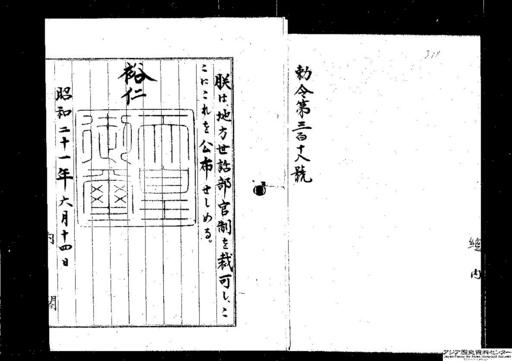 勅令第三百十八號
朕は、地方世話部官制を裁可し、こ
こにこれを公布せしめる。
裕仁
天皇
御璽
昭和二十一年六月十四日
内
閣
内
アジア歴史資料センター